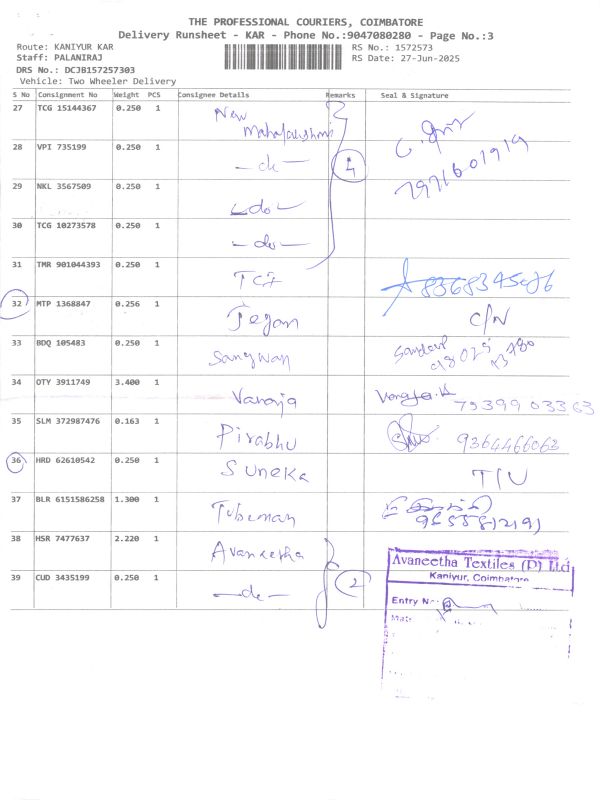 THE PROFESSIONAL COURIERS, COIMBATORE
Delivery Runsheet - KAR - Phone No.:9047080280 - Page No.:3
Route: KANIYUR KAR
RS No.: 1572573
Staff: PALANIRAJ
RS Date: 27-Jun-2025
DRS No.: DCJB157257303
Vehicle: Two Wheeler Delivery
S No Consignment No Weight PCS Consignee Details Remarks Seal & Signature
27 TCG 15144367 0.250 1 New
28 VPI 735199 0.250 1 4
29 NKL 3567509 0.250 1 - do -
30 TCG 10273578 0.250 1 - do -
31 TMR 901044393 0.250 1
32 MTP 1368847 0.256 1 Jegan C/N
33 BDQ 105483 0.250 1 Sangwan
34 OTY 3911749 3.400 1 Vanaja 7539903363
35 SLM 372987476 0.163 1 Pirabhu 9364466063
36 HRD 62610542 0.250 1 Suneka T/U
37 BLR 6151586258 1.300 1 Tubeman
38 HSR 7477637 2.220 1 Avaneetha
39 CUD 3435199 0.250 1 - do - 2
Avaneetha Textiles (P) Ltd
Kaniyur, Coimbatore
Entry No